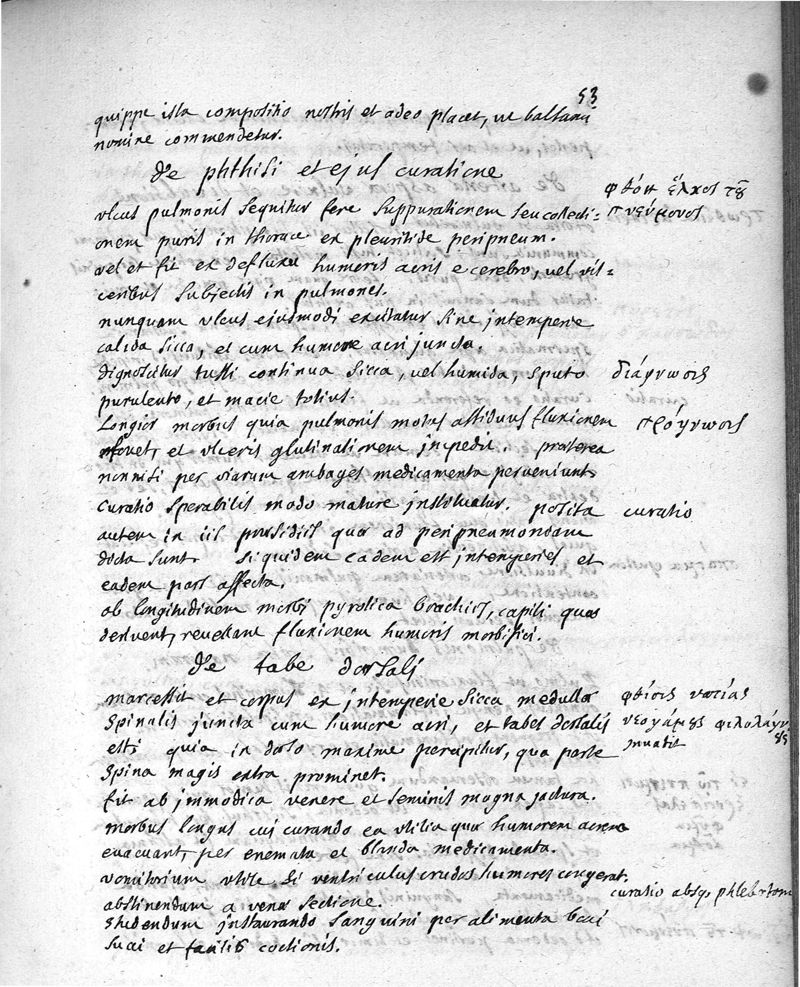 53
quippe ista compositio nostris et adeo placet, ut balsami
nomine commendetur.
De phthisi et ejus curatione
φθόη ἕλκος τοῦ
πνεύμονος
vlcus pulmonis sequitur fere suppurationem seu collecti-
onem puris in thorace ex pleuritide peripneum.
vel et fit ex defluxu humoris acris e cerebro, vel vis=
ceribus subjectis in pulmones.
nunquam vlcus ejusmodi excitatur sine intemperie
calida sicca, et cum humore acri juncta.
dignoscitur tussi continua sicca, vel humida, sputo
διάγνωσις
purulento, et macie totius.
Longior morbus quia pulmonis motus assiduus fluxionem
πρόγνωσις
movet, et vlceris glutinationem impedit. praeterea
non nisi per viarum ambages medicamenta perveniunt
curatio sperabilis modo mature instituatur. posita
curatio
autem in iis praesidiis quae ad peripneumoniam
dicta sunt. siquidem eadem est intemperies et
eadem pars affecta.
ob longitudinem morbi pyrotica brachiis, capiti quae
derivent, revellant fluxionem humoris morbifici.
De tabe dorsali
marcessit et corpus ex intemperie sicca medullae
φθίσις νωτιάς
spinalis juncta cum humore acri, et tabes dorsalis
νεογάμους φιλολάγν
ους
est, quia in dorso maxime percipitur, qua parte
invadit
spina magis extra prominet.
fit ab immodica venere et seminis magna jactura.
morbus longus cui curando ea vtilia quae humorem acrem
evacuant, per enemata et blanda medicamenta.
vomitorium vtile si ventriculus crudos humores congerat.
curatio absq. phlebotom
abstinendum a venae sectione.
studendum instaurando sanguini per alimenta boni
succi et facilis coctionis.